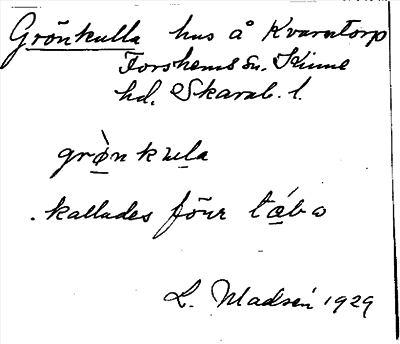 Grönkulla hus å Kvarntorp
Forshems sn. Kinne
hd. Skarab. l.
grø̀nkula
.kallades förr
L. Madsén 1929